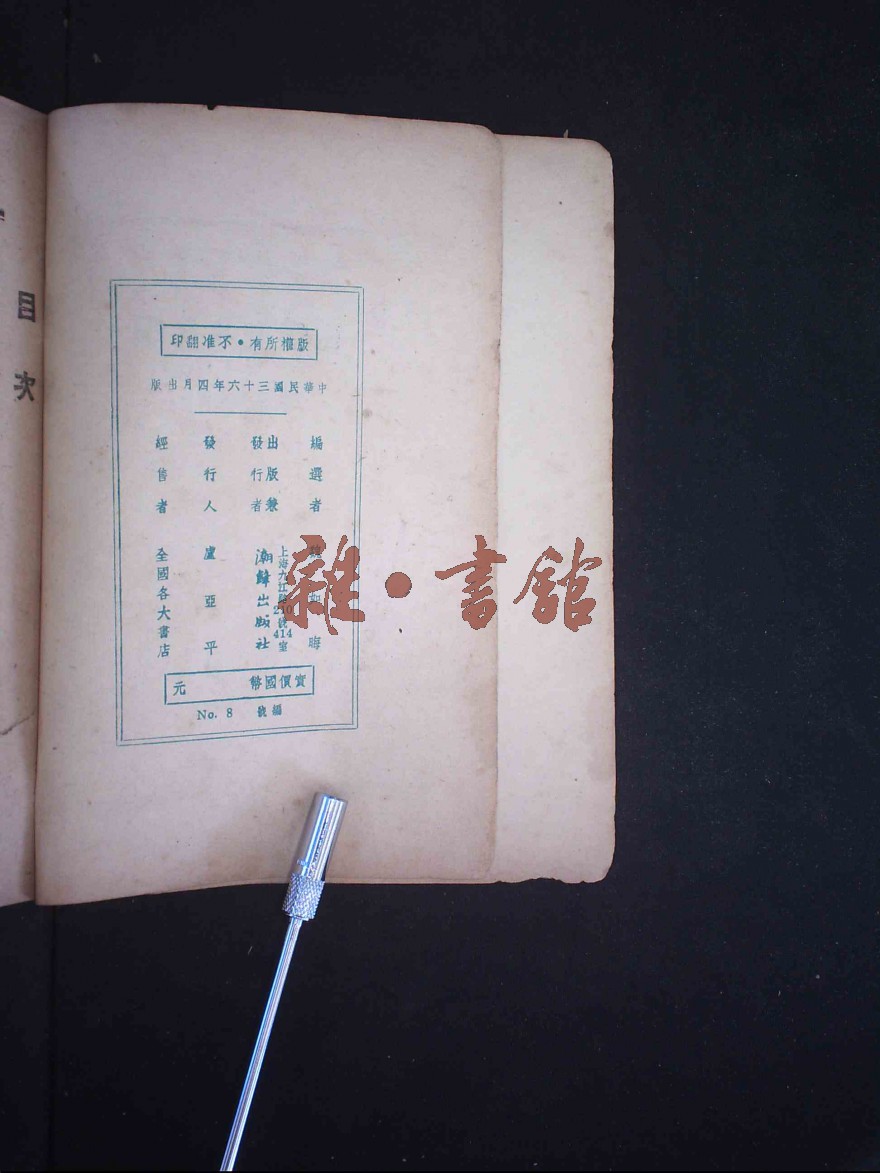 目次
版權所有・不准翻印
中華民國三十六年四月出版
編選者
晦
出版兼
發行者
上海九江路210號414室
潮鋒出版社
發行人
盧亞平
經售者
全國各大書店
實價國幣 元
編號 No. 8
雜・書館